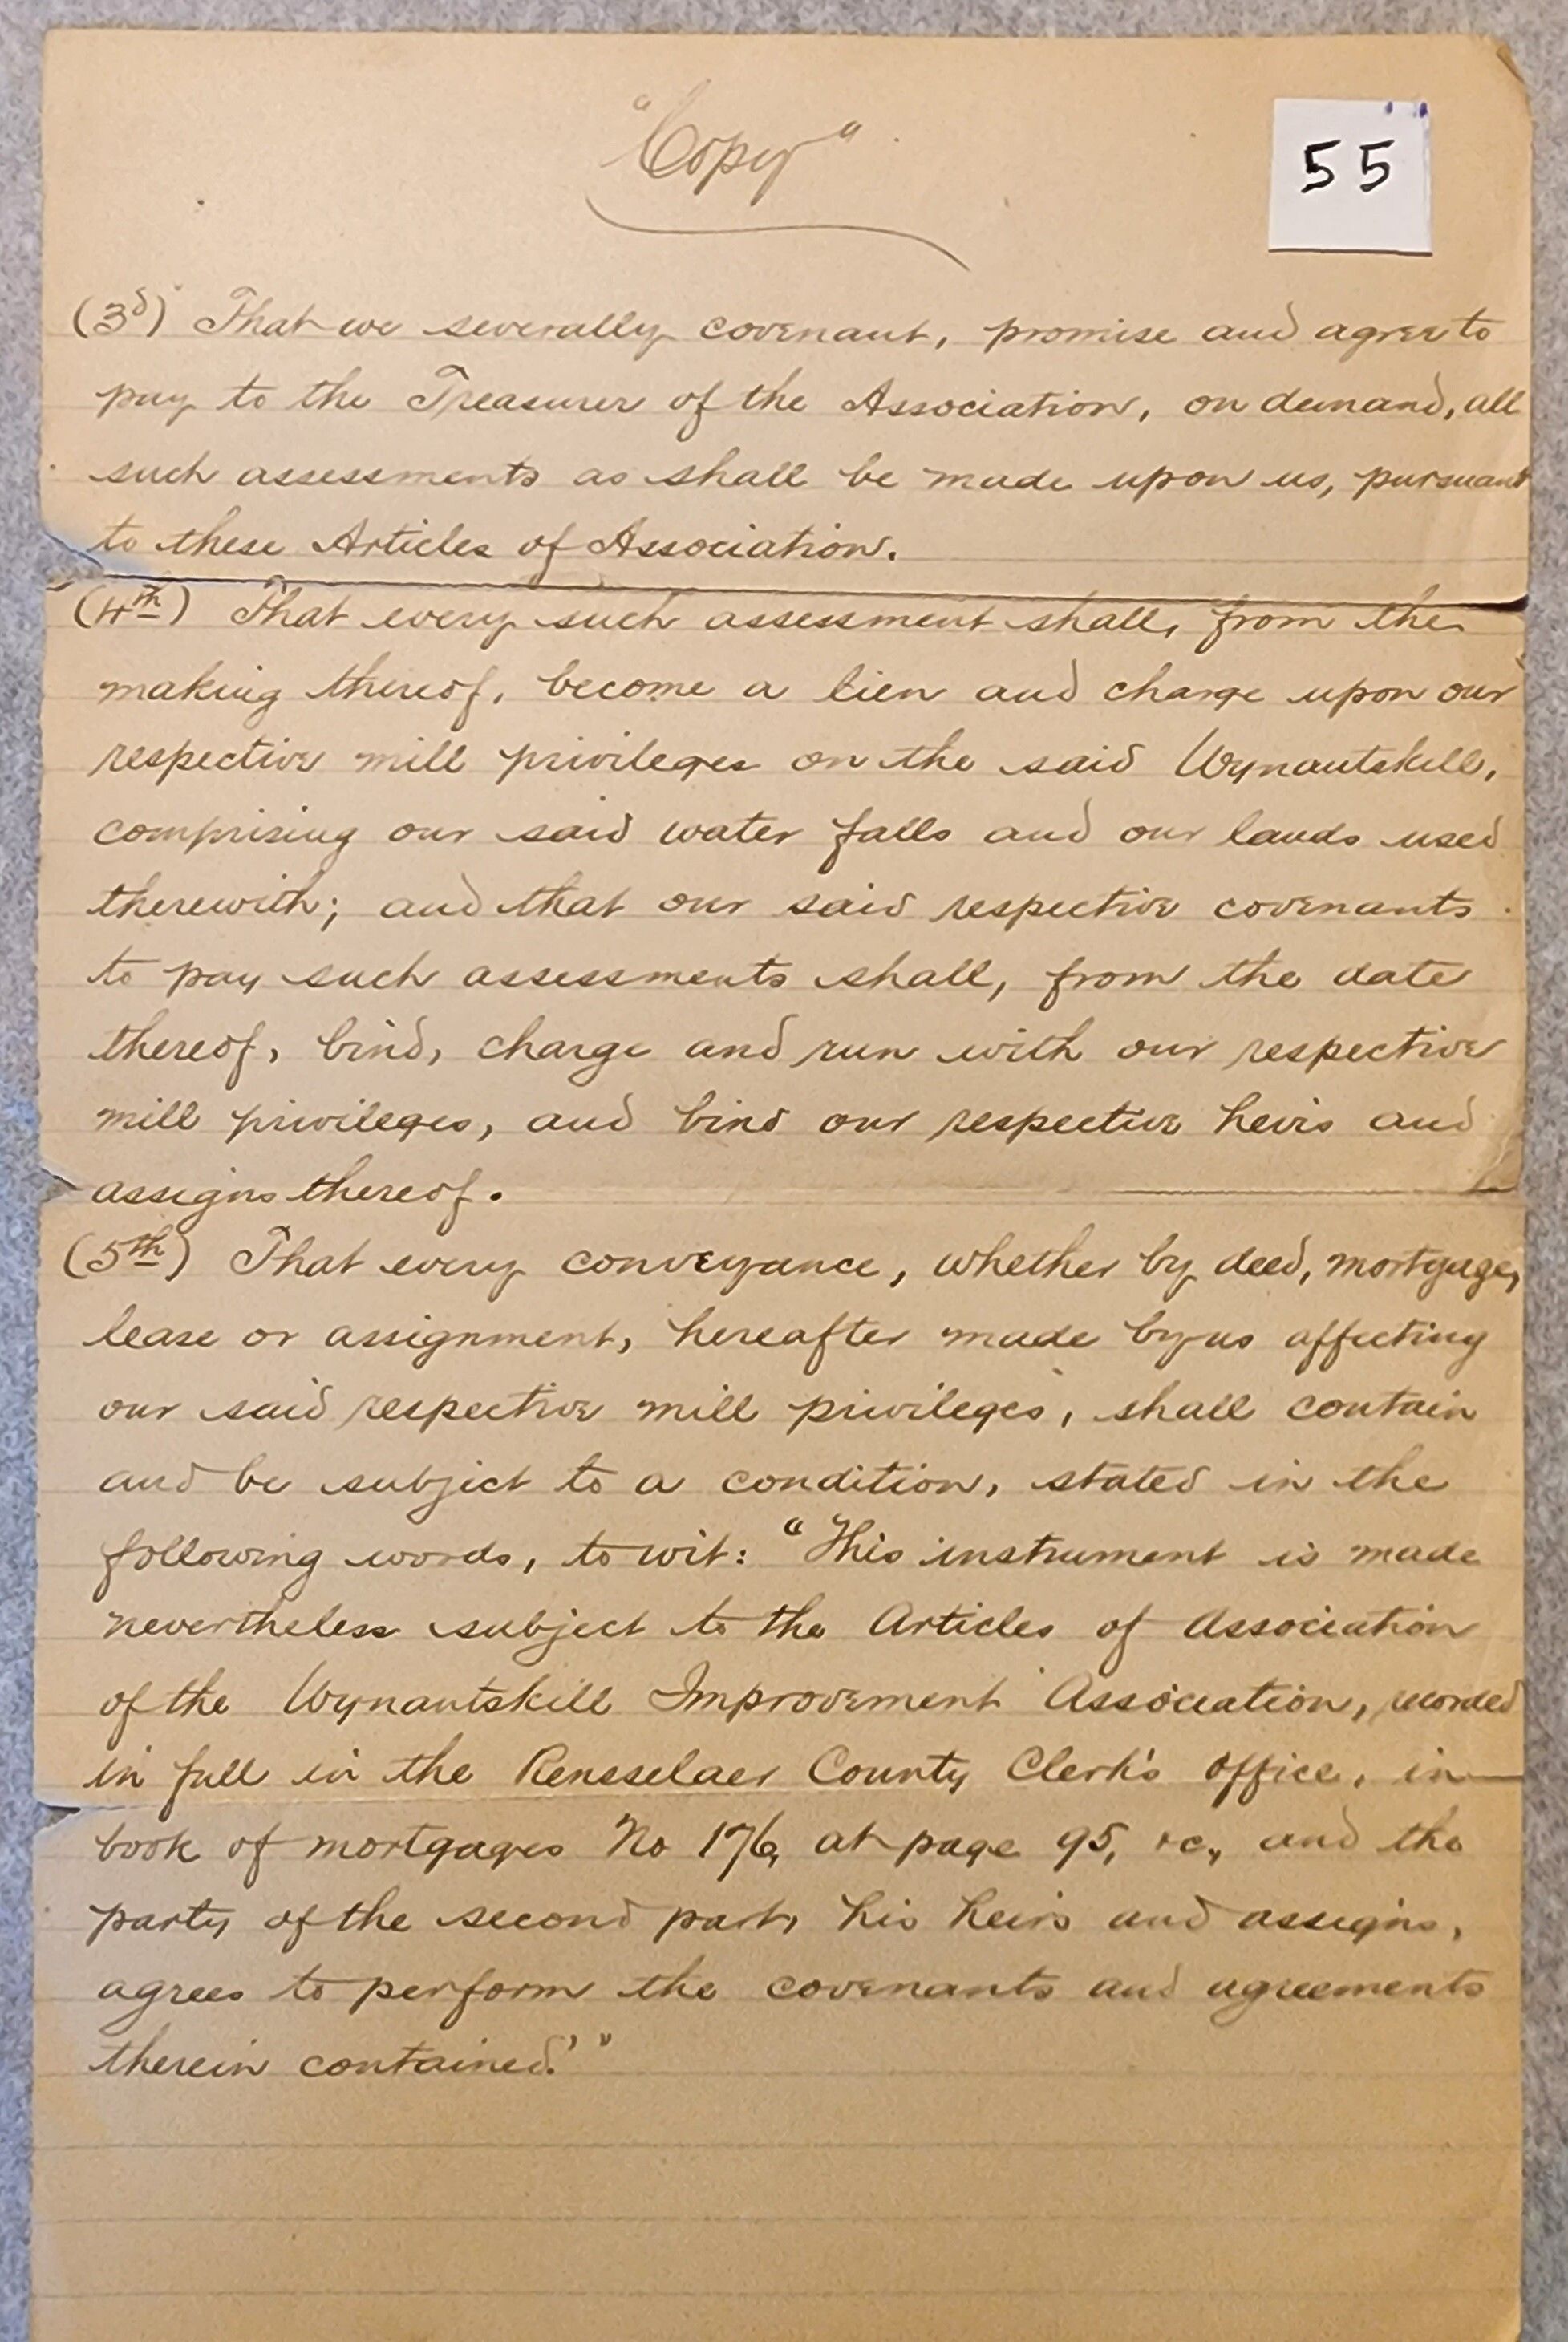 "Copy"
55
(3d) That we severally covenant, promise and agree to
pay to the Treasurer of the Association, on demand, all
such assessments as shall be made upon us, pursuant
to these Articles of Association.
(4th) That every such assessment shall, from the
making thereof, become a lien and charge upon our
respective mill privileges on the said Wynantskill,
comprising our said water falls and our lands used
therewith; and that our said respective covenants
to pay such assessments shall, from the date
thereof, bind, charge and run with our respective
mill privileges, and bind our respective heirs and
assigns thereof.
(5th) That every conveyance, whether by deed, mortgage,
lease or assignment, hereafter made by us affecting
our said respective mill privileges, shall contain
and be subject to a condition, stated in the
following words, to wit: "This instrument is made
nevertheless subject to the Articles of Association
of the Wynantskill Improvement Association, recorded
in full in the Rensselaer County Clerk's office, in
book of mortgages No 176, at page 95, &c., and the
party of the second part, his heirs and assigns,
agrees to perform the covenants and agreements
therein contained.' "